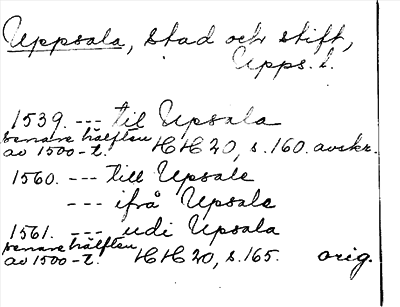 Uppsala, stad och stift,
Upps. l.
1539. --- til Upsala
senare hälften
av 1500-t. HH 20, s. 160. avskr.
1560. --- till Upsale
--- ifrå Upsale
1561. --- udi Upsala
senare hälften
av 1500-t. HH 20, s. 165. orig.